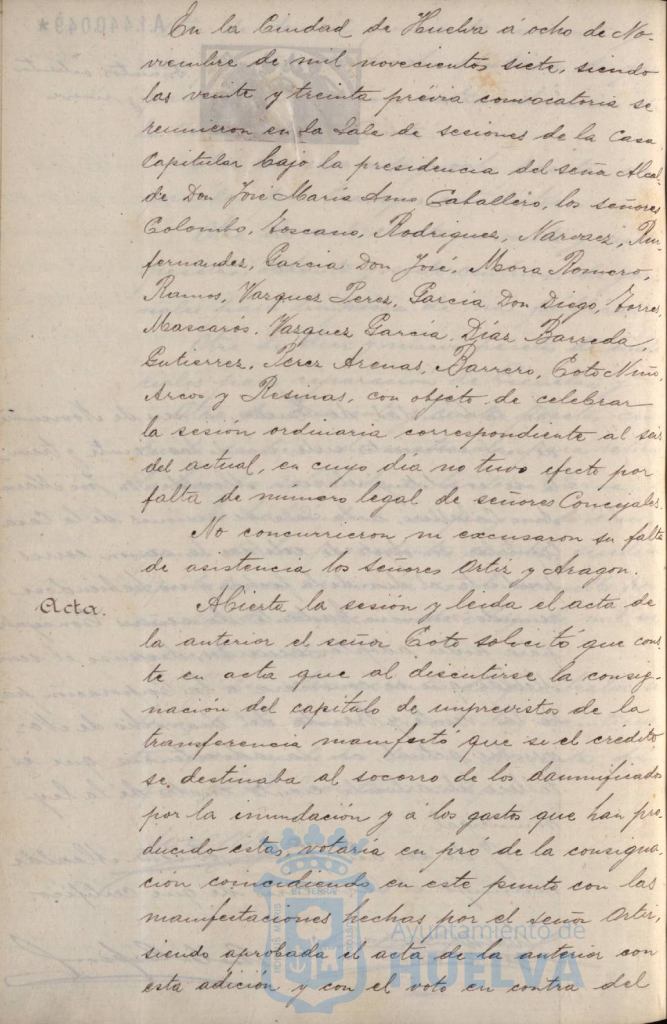 En la Ciudad de Huelva á ocho de No-
viembre de mil novecientos siete, siendo
las veinte y treinta prévia convocatoria se
reunieron en la Sala de sesiones de la Casa
Capitular bajo la presidencia del señor Alcal-
de Don José María Amo Caballero, los señores
Colombo, Toscano, Rodriguez, Narvaez,
fernandez, Garcia Don José, Mora Romero,
Ramos, Vazquez Perez, Garcia Don Diego, Torres,
Mascarós, Vazquez Garcia, Díaz Barreda,
Gutierrez, Perez Arenas, Barrero, Coto Niño,
Arcos y Resinas, con objeto de celebrar
la sesión ordinaria correspondiente al seis
del actual, en cuyo día no tuvo efecto por
falta de número legal de señores Concejales.
No concurrieron ni excusaron su falta
de asistencia los señores Ortiz y Aragon.
Acta.
Abierta la sesión y leida el acta de
la anterior el señor Coto solicitó que cons-
te en acta que al discutirse la consig-
nación del capitulo de imprevistos de la
transferencia manifestó que si el crédito
se destinaba al socorro de los damnificados
por la inundación y á los gastos que han pro-
ducido estas, votaria en pró de la consigna-
ción coincidiendo en este punto con las
manifestaciones hechas por el señor Ortiz,
siendo aprobada el acta de la anterior con
esta adición y con el voto en contra del
Ayuntamiento de
HUELVA